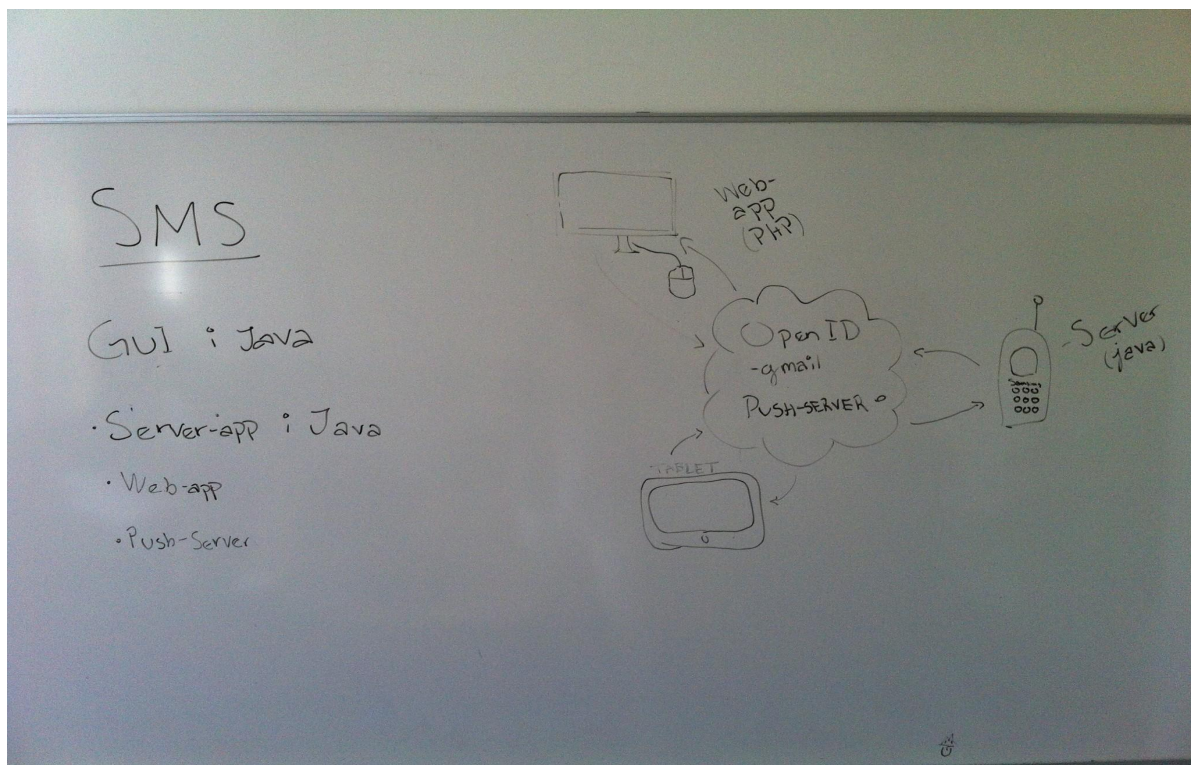 SMS
GUI i Java
· Server-app i Java
· Web-app
· Push-Server
Web-
app
(PHP)
OpenID
-gmail
PUSH-SERVER
TABLET
-Server
(java)